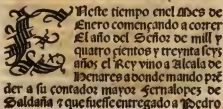 ENeste tiempo enel Mes de
Enero començando a correr
El año del Señor de mill y
quatro cientos y treynta seys
años el Rey vino a Alcala de
Henares a donde mando pren
der a su contador mayor Fernalopes de
Saldaña ⁊ que fuesse entregado a Pero